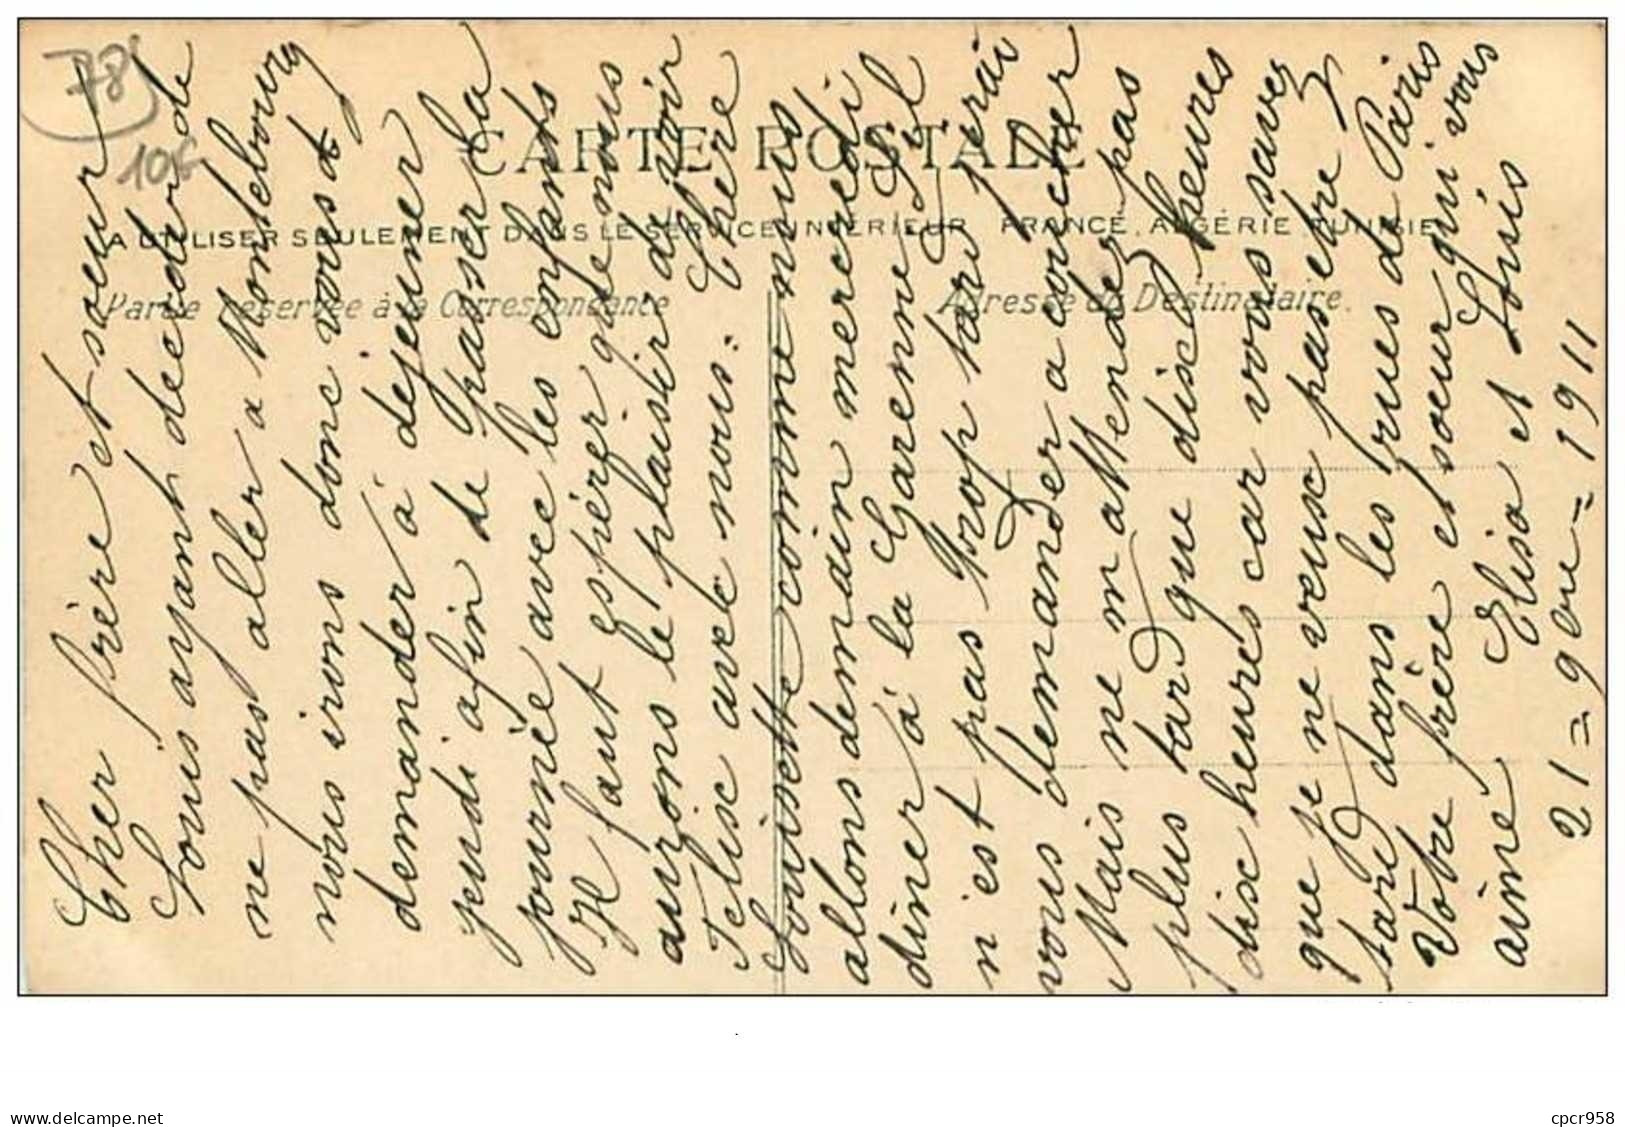 78
10f
CARTE POSTALE
A UTILISER SEULEMENT DANS LE SERVICE INTÉRIEUR FRANCE, ALGÉRIE, TUNISIE
Partie réservée à la Correspondance
Adresse du Destinataire.
Cher frère et sœur
Louis ayant decider de
ne pas aller a Montebourg
nous irons donc vous
demander à dejeuner
jeudi afin de passer la
journée avec les enfants
Il faut espérer que nous
aurons le plaisir d'avoir
Felix avec nous. Chère
Louisette comme nous
allons demain mercredi
diner à la Garenne s'il
n'est pas trop tard j'erai
vous demander a coucher
Mais ne m'attendez pas
plus tard que disc heures
disc heures car vous savez
que je ne veusc pas etre
tard dans les rues de Paris
Votre frère et sœur qui vous
aime Elisa et Louis
21 = 9bre = 1911
delcampe.net
cpcr958